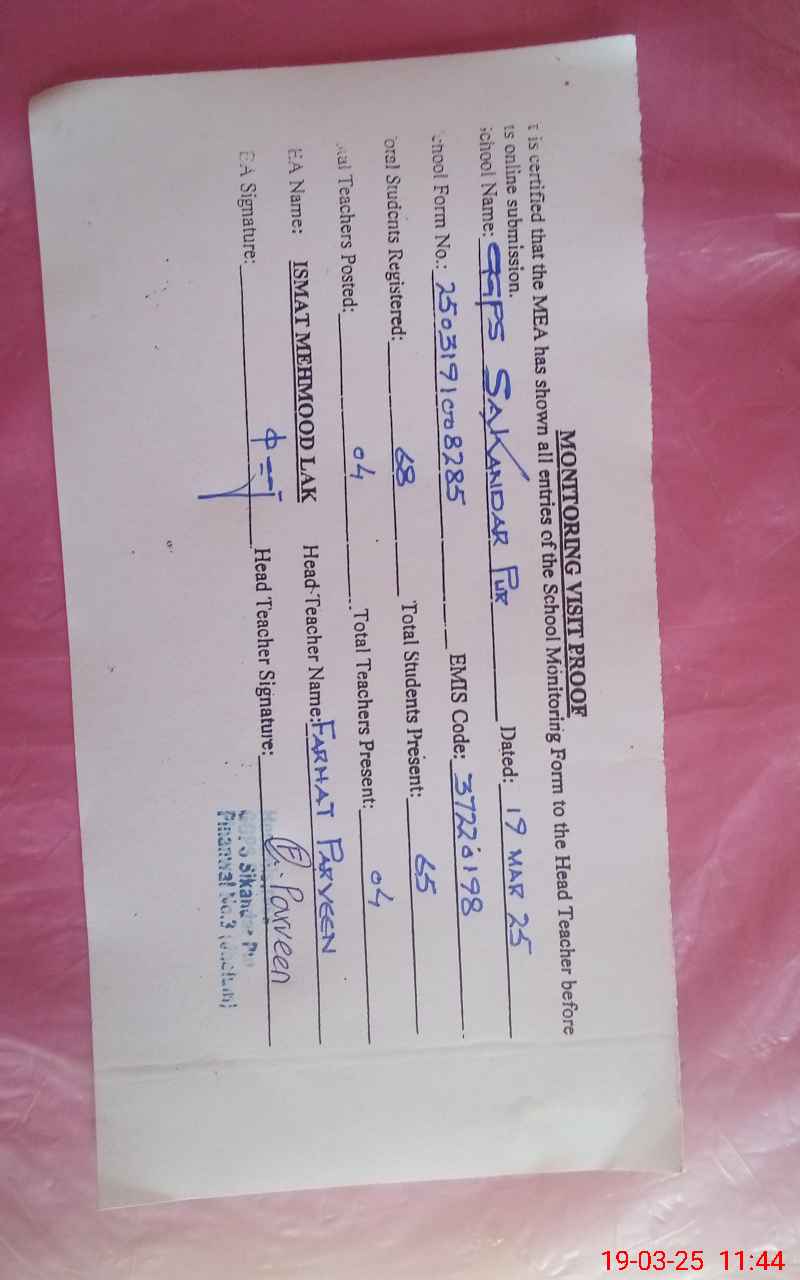 MONITORING VISIT PROOF
t is certified that the MEA has shown all entries of the School Monitoring Form to the Head Teacher before
ts online submission.
chool Name: GGPS SAKANDAR PUR Dated: 19 MAR 25
chool Form No.: EMIS Code: 37220198
Students Registered: 68 Total Students Present: 65
Teachers Posted: 04 Total Teachers Present: 04
EA Name: ISMAT MEHMOOD LAK Head Teacher Name: FARHAT PARVEEN
EA Signature: Head Teacher Signature: Parveen
Sikandar Pur
No.3
19-03-25 11:44